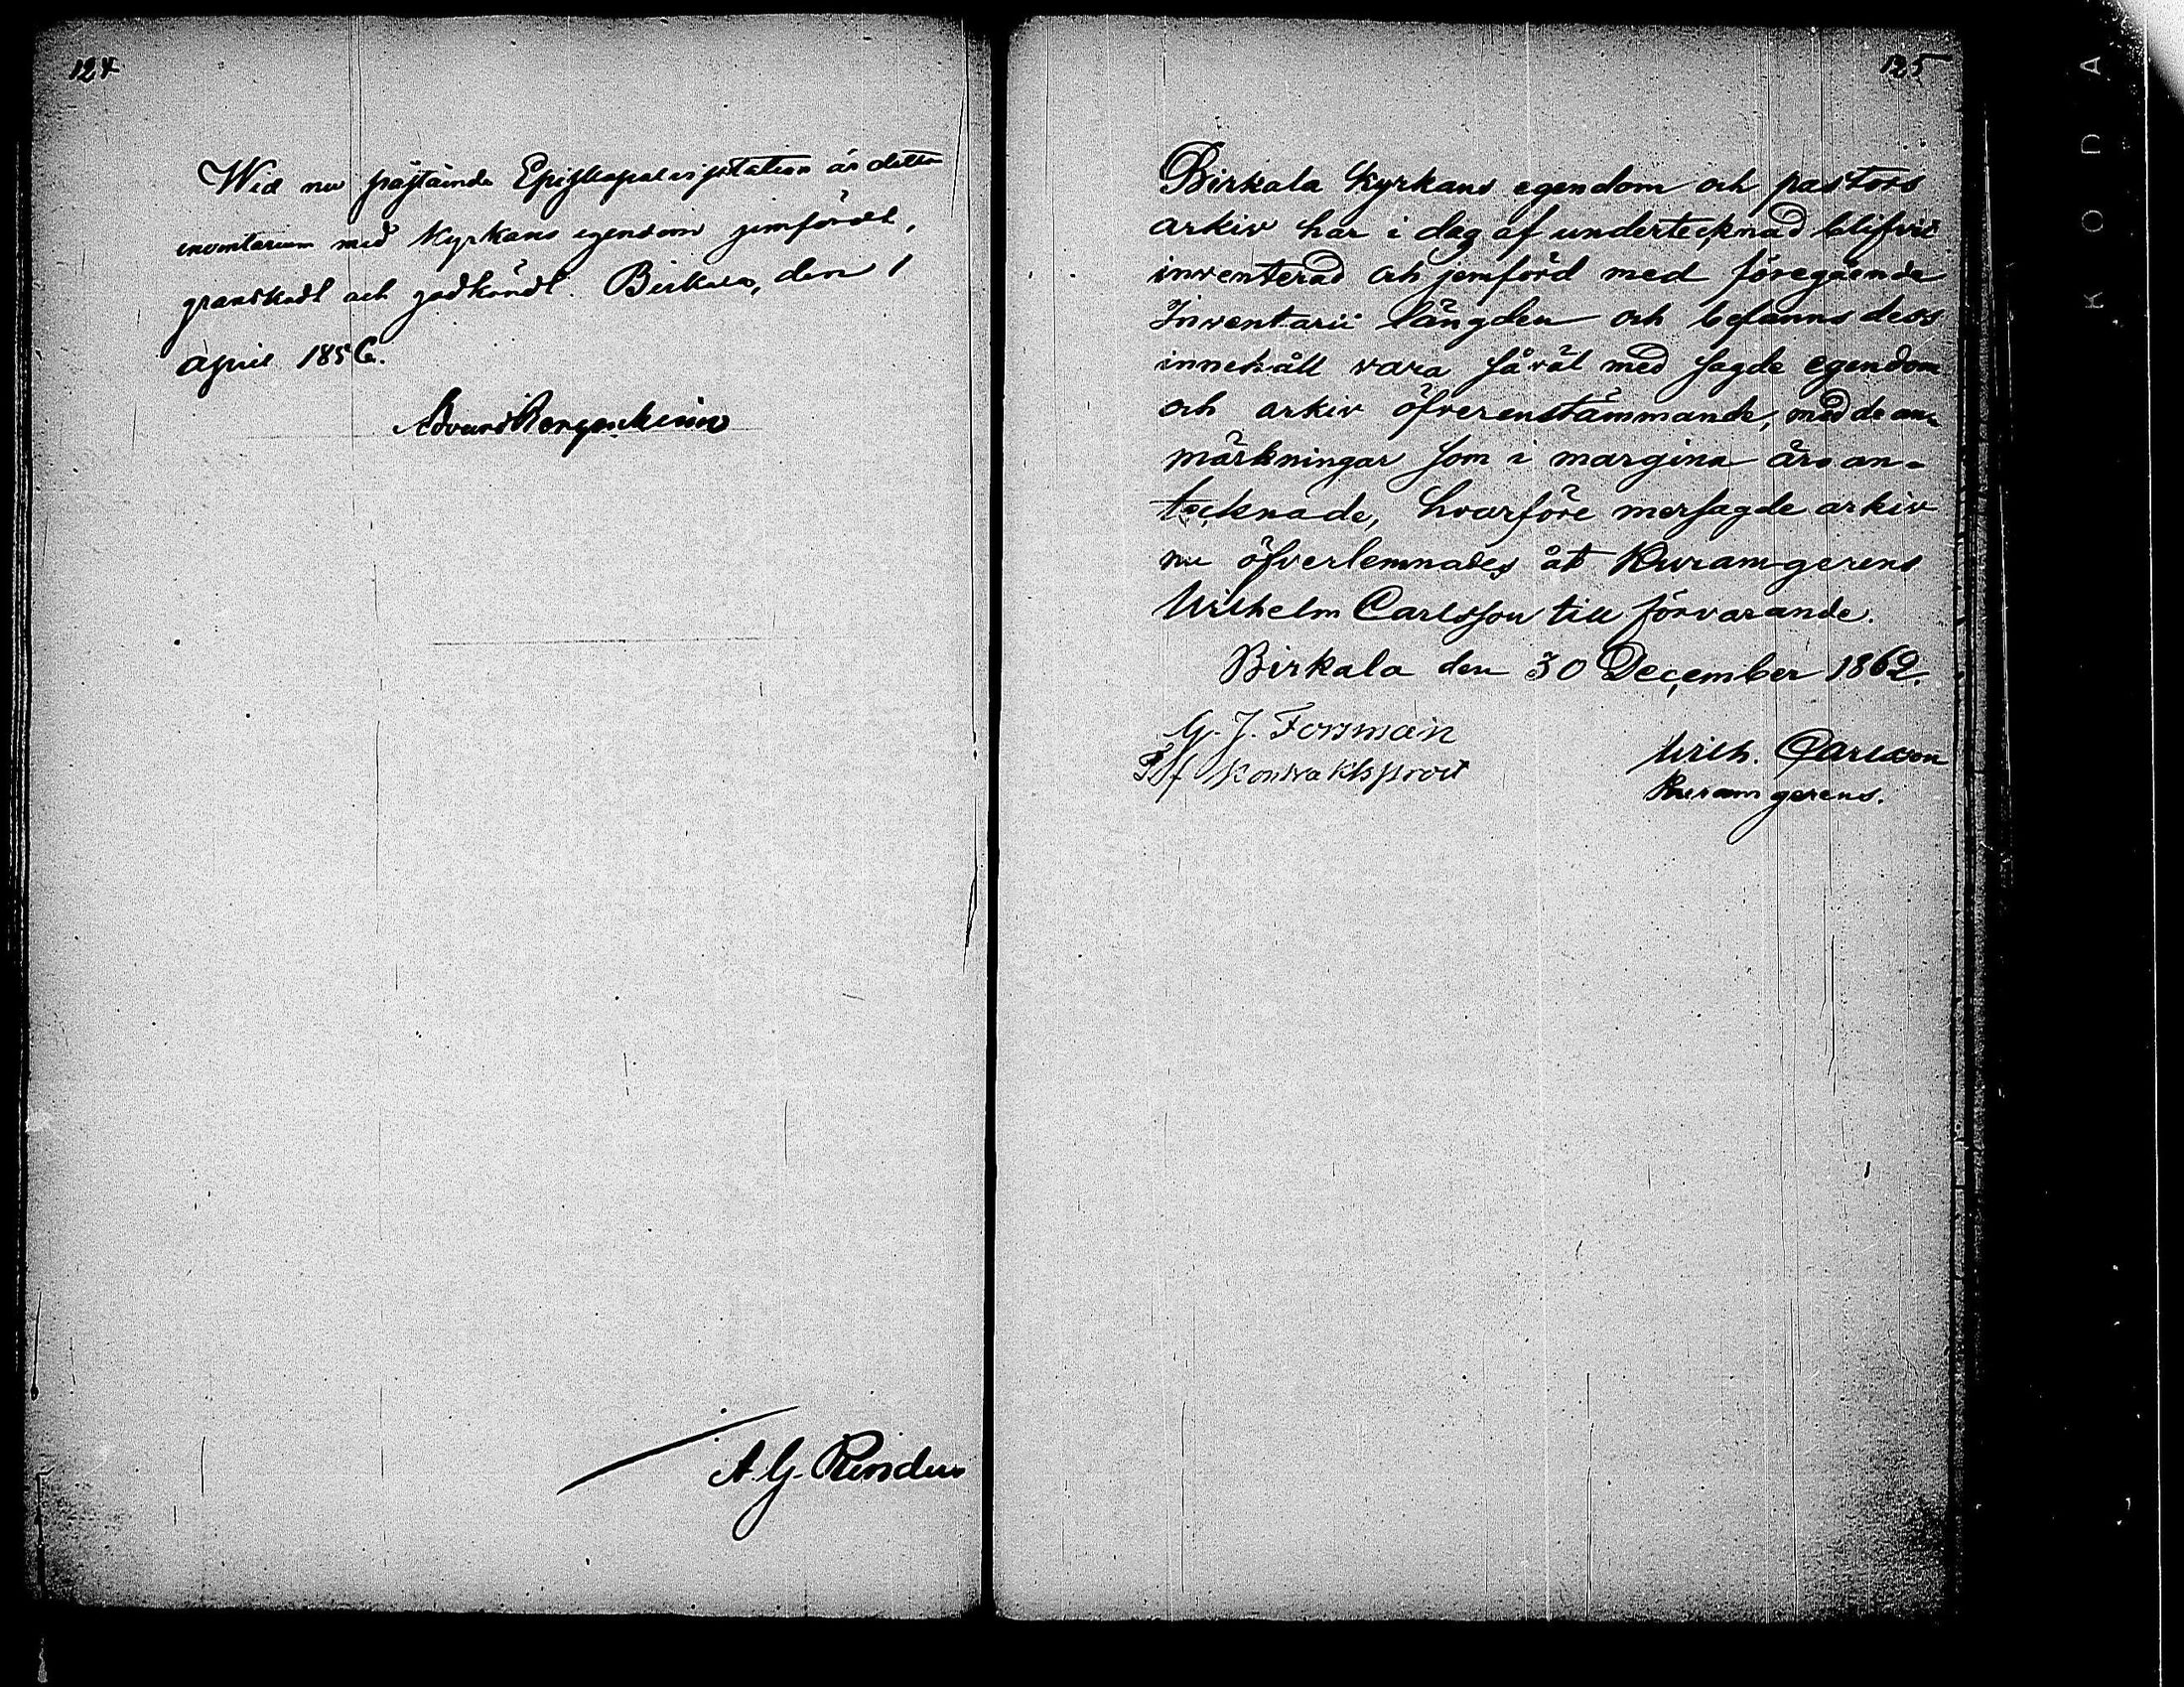 124
Wid nu påstående Episkopalvisitation är detta
inventarium med Kyrkans egendom jemfördt,
granskadt och godkändt. Birkala, den 1
April 1856.
Edvard Bergenheim
A. G.
125
Birkala Kyrkans egendom och pastors
arkiv har i dag af undertecknad blifvit
inventerad och jemförd med föregående
Inventarii längden och befanns dess
innehåll vara såväl med sagde egendom
och arkiv öfverenstämmande, med de an-
märkningar som i margine äro an-
tecknade, hvarföre mersagde arkiv
nu öfverlemnades åt Kuram gerens
Wilhelm Carlsson till förvarande.
Birkala den 30 December 1862.
G. J. Forsman
Tf Kontraktsprost
Wilh. Carlsson
Kuram gerens.
KODA